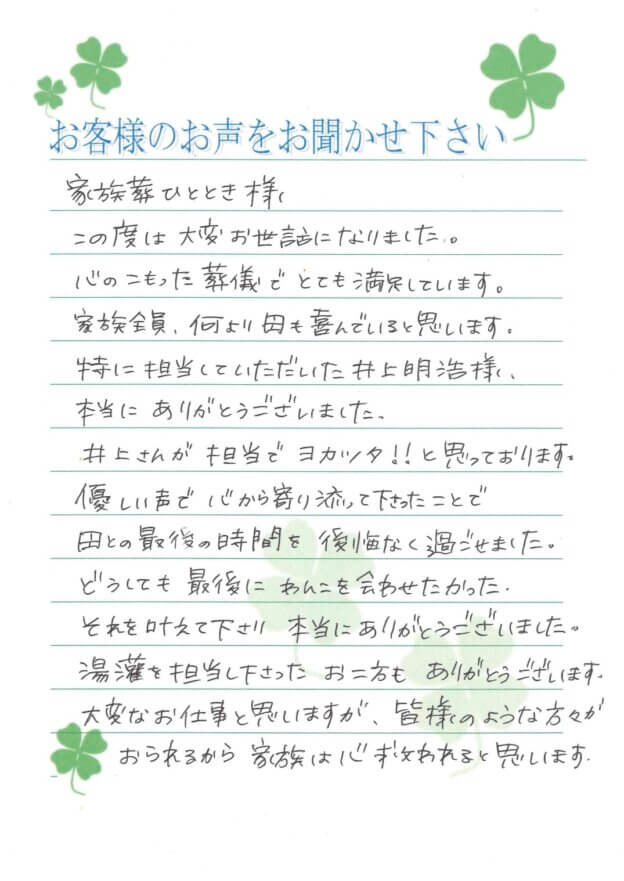 お客様のお声をお聞かせ下さい
家族葬ひととき様
この度は大変お世話になりました。
心のこもった葬儀でとても満足しています。
家族全員、何より母も喜んでいると思います。
特に担当していただいた井上明浩様、
本当にありがとうございました。
井上さんが担当でヨカッタ!!と思っております。
優しい声で心から寄り添って下さったことで
母との最後の時間を後悔なく過ごせました。
どうしても最後にわんこを会わせたかった。
それを叶えて下さり本当にありがとうございました。
湯灌を担当し下さったお二方もありがとうございます。
大変なお仕事と思いますが、皆様のような方々が
おられるから家族は心救われると思います。